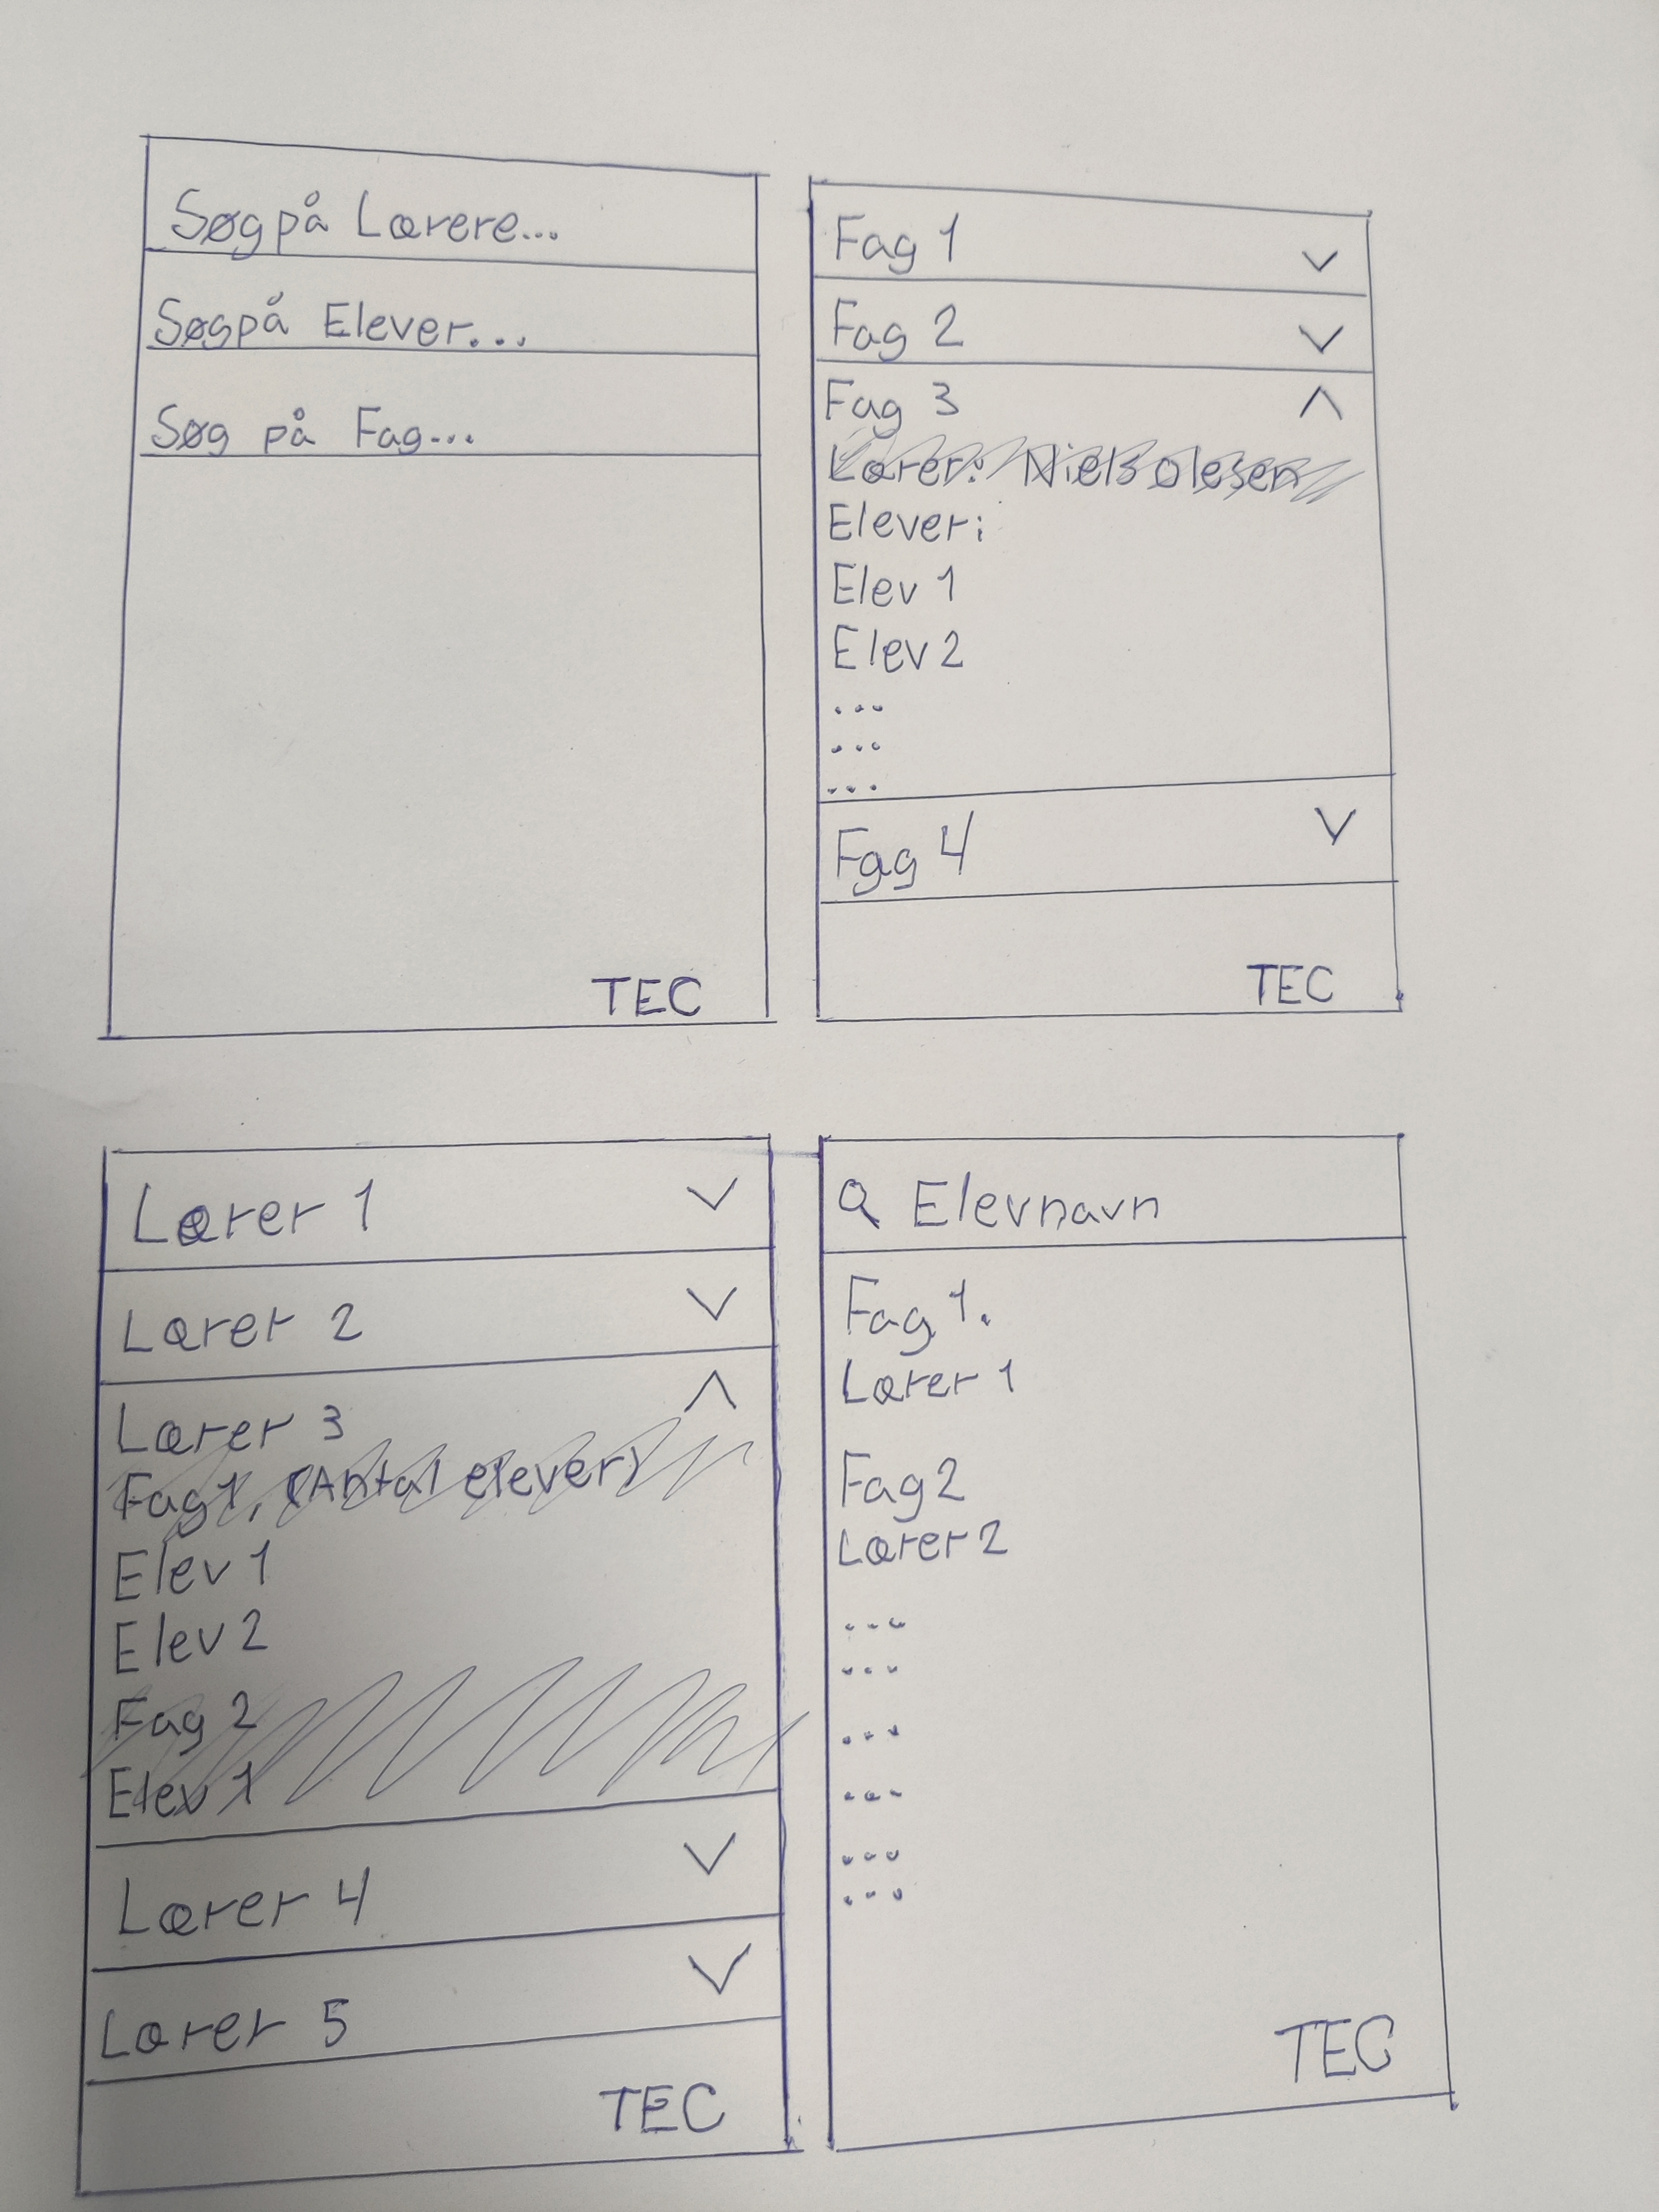 Søg på Lærere...
Søg på Elever...
Søg på Fag...
TEC
Fag 1
Fag 2
Fag 3
Lærer: Niels olesen
Elever:
Elev 1
Elev 2
...
...
...
Fag 4
TEC
Lærer 1
Lærer 2
Lærer 3
Fag 1, (Antal elever)
Elev 1
Elev 2
Fag 2
Elev 1
Lærer 4
Lærer 5
TEC
Elevnavn
Fag 1.
Lærer 1
Fag 2
Lærer 2
...
...
...
...
...
...
TEC